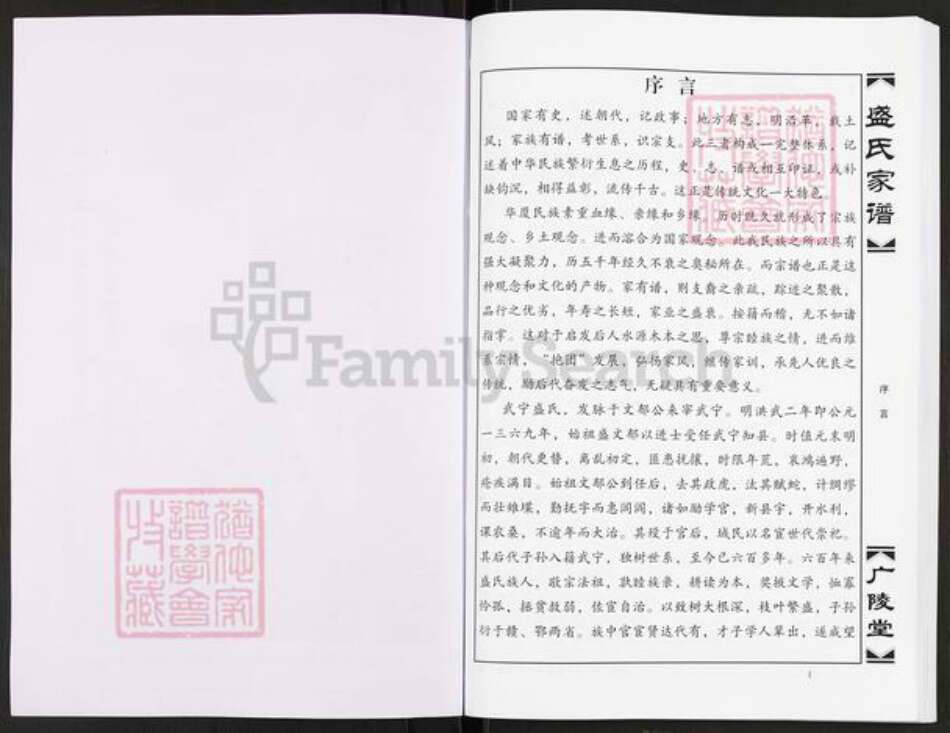 序言
国家有史，述朝代，记政事；地方有志，明沿革，载土
风；家族有谱，考世系，识宗支。此三者构成一完整体系，记
述着中华民族繁衍生息之历程，史、志、谱或相互印证，或补
缺钩沉，相得益彰，流传千古。这正是传统文化一大特色。
华厦民族素重血缘、亲缘和乡缘，历时既久就形成了宗族
观念、乡土观念。进而溶合为国家观念。此我民族之所以具有
强大凝聚力，历五千年经久不衰之奥秘所在。而宗谱也正是这
种观念和文化的产物。家有谱，则支裔之亲疏，踪迹之聚散，
品行之优劣，年寿之长短，家业之盛衰。按籍而稽，无不如诸
指掌。这对于启发后人水源木本之思，尊宗睦族之情，进而维
系宗情，“抱团”发展，弘扬家风，继传家训，承先人优良之
传统，励后代奋发之志气，无疑具有重要意义。
武宁盛氏，发脉于文郁公来宰武宁。明洪武二年即公元
一三六九年，始祖盛文郁以进士受任武宁知县。时值元末明
初，朝代更替，离乱初定，匪患扰攘，时限年荒，哀鸿遍野，
疮疾满目。始祖文郁公到任后，去其政虎，法其赋蛇，计绸缪
而壮雉堞，勤抚字而惠闾阎，诸如励学宫，新县宇，开水利，
课农桑，不逾年而大治。其殁于官后，域民以名宦世代崇祀。
其后代子孙入籍武宁，独树世系，至今已六百多年。六百年来
盛氏族人，敬宗法祖，敦睦族亲，耕读为本，奖掖文学，恤寡
怜孤，拯贫救弱，佐宦自治。以致树大根深，枝叶繁盛，子孙
衍于赣、鄂两省。族中官宦贤达代有，才子学人辈出，遂成望
盛氏家谱
序言
广陵堂
1
FamilySearch
猶他家
譜學會
收藏
猶他家
譜學會
收藏